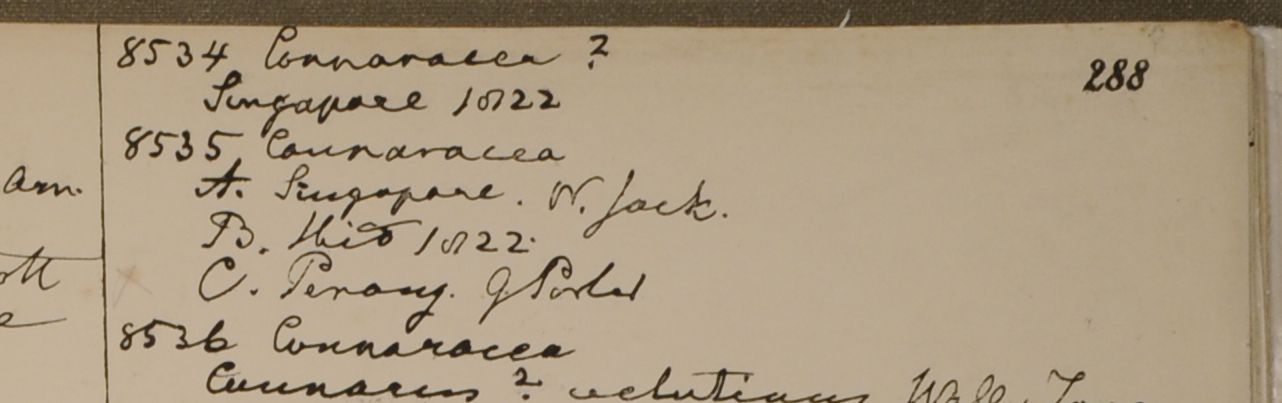 arn.
8534 Connaracea ?
288
Singapore 1822
8535 Connaracea
A. Singapore. W. Jack.
B. Ibid 1822.
C. Penang. G Porter
8536 Connaracea
Connarus ? velutinus Wall.